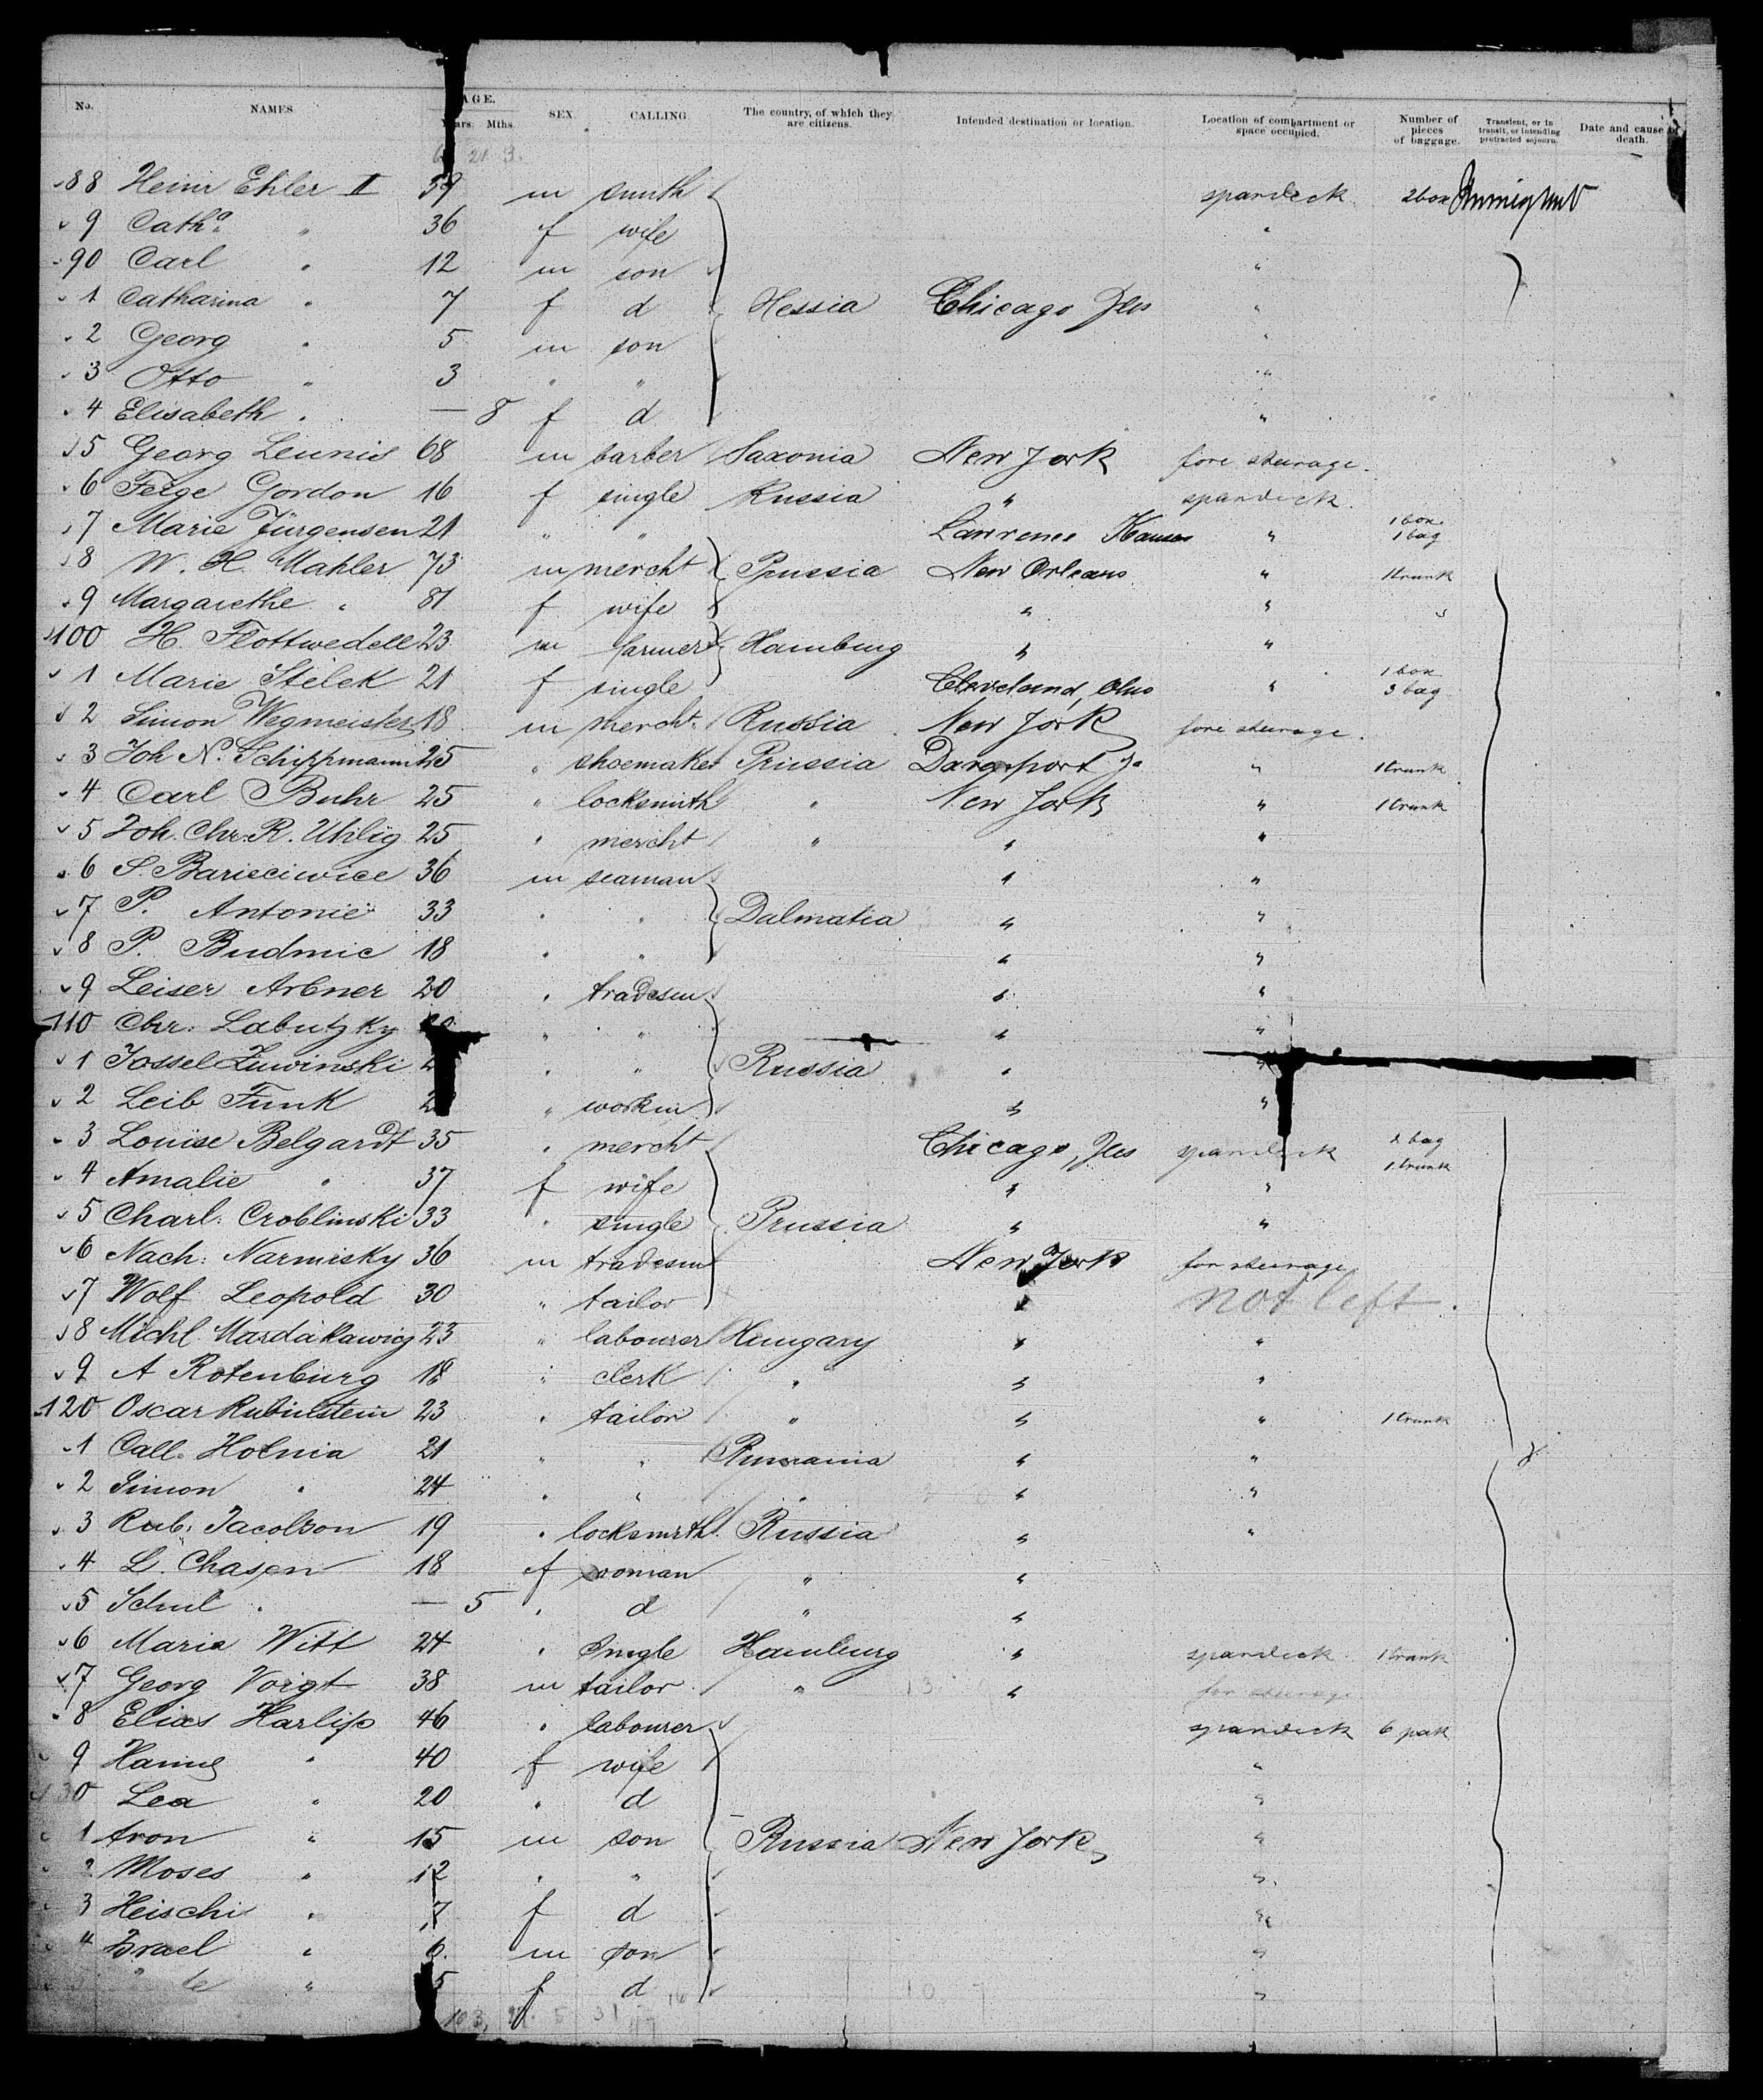 No. NAMES AGE. Years. Mths. SEX. CALLING The country, of which they are citizens. Intended destination or location. Location of compartment or space occupied. Number of pieces of baggage. Transient, or in transit, or intending protracted sojourn. Date and cause of death.
88 Heinr Ehler II 39 m smith spardeck 2 box
9 Cath.a " 36 f wife "
90 Carl " 12 m son "
1 Catharina " 7 f d Hessia Chicago Jlls "
2 Georg " 5 m son "
3 Otto " 3 " " "
4 Elisabeth " — 8 f d "
5 Georg Leunis 68 m barber Saxonia New York fore steerage.
6 Feige Gordon 16 f single Russia " spardeck.
7 Marie Jürgensen 21 " " Lawrence Kansas " 1 box 1 bag
8 W. H. Mahler 73 m mercht Prussia New Orleans " 1 trunk
9 Margarethe " 81 f wife " " "
100 H. Flottwedell 23 m farmer Hamburg " "
1 Marie Stelek 21 f single Cleveland, Ohio " 1 box 3 bag
2 Simon Wegmeister 18 m mercht. Russia New York fore steerage.
3 Joh N. Schippmann 25 " shoemaker Prussia Davenport Jo " 1 trunk
4 Carl Buhr 25 " locksmith " New York " 1 trunk
5 Joh. Chr. R. Uhlig 25 " mercht " " "
6 S. Barieciwice 36 m seaman " "
7 P. Antonie 33 " " Dalmatia " "
8 P. Budmic 18 " " " "
9 Leiser Arbner 20 " tradesm " "
110 Chr. Labutzky " " " "
1 Jossel Luwinski " " Russia " "
2 Leib Funk " workm " "
3 Louise Belgardt 35 " mercht Chicago, Jlls spardeck 2 bag 1 trunk
4 Amalie " 37 f wife " "
5 Charl. Croblinski 33 " single Prussia " "
6 Nach. Narmisky 36 m tradesm New York for steerage
7 Wolf Leopold 30 " tailor " not left.
8 Michl. Mardakawicz 23 " labourer Hungary " "
9 A Rotenburg 18 " clerk " " "
120 Oscar Rubinstein 23 " tailor " " " 1 trunk
1 Call. Holnia 21 " " Rumania " "
2 Simon " 24 " " " " "
3 Rub. Jacobson 19 " locksmith Russia " "
4 L. Chasen 18 f woman " "
5 Schul " — 5 " d " "
6 Maria Witt 24 " single Hamburg " spardeck 1 trunk
7 Georg Voigt 38 m tailor " " for steerage
8 Elias Harlip 46 " labourer spardeck 6 pak
9 Hanne " 40 f wife "
30 Lea " 20 " d "
1 Aron " 15 m son Russia New York "
2 Moses " 12 " " "
3 Heischi " 7 f d "
4 Israel " 6 m son "
" 5 f d "